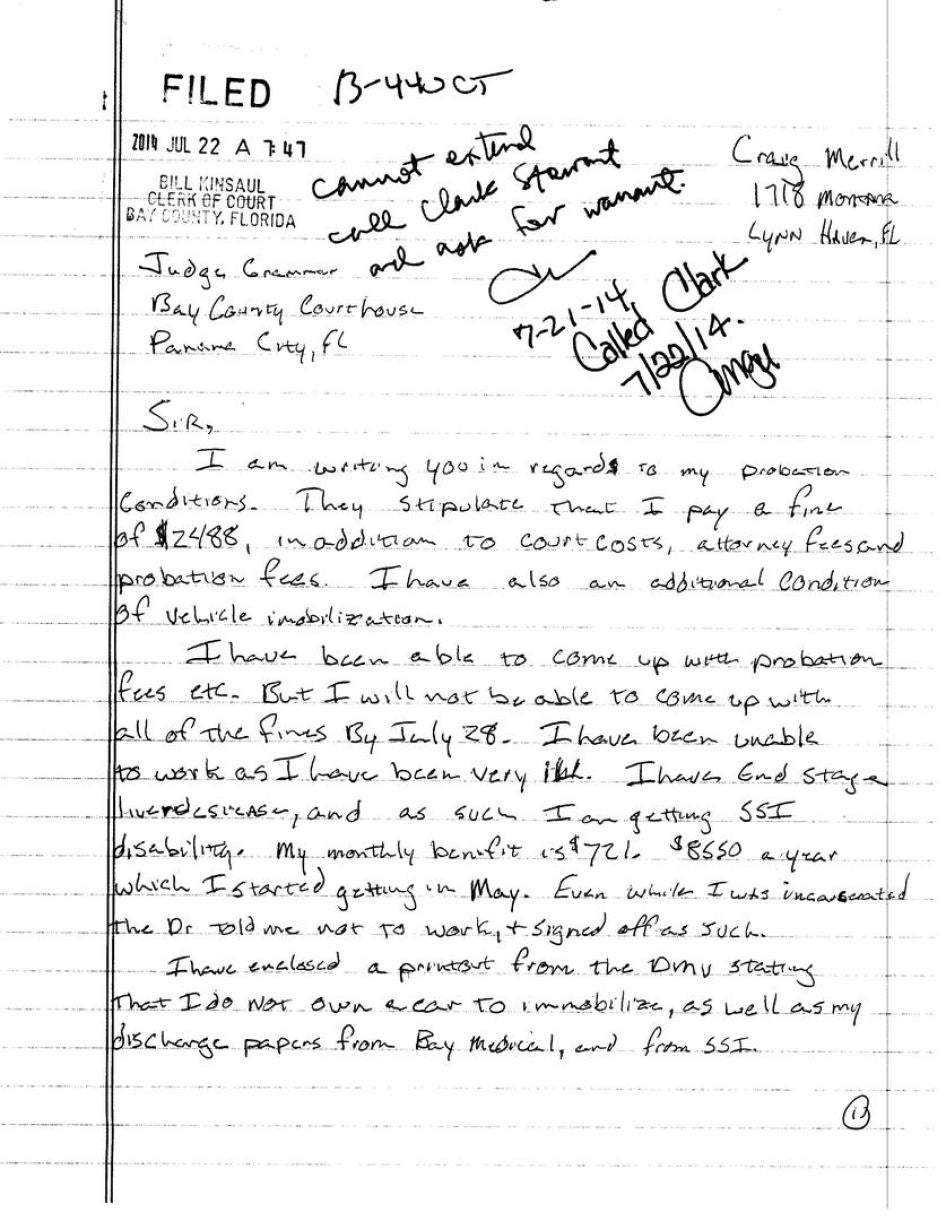 FILED
13-440CT
2014 JUL 22 A 7:47
BILL KINSAUL
CLERK OF COURT
BAY COUNTY, FLORIDA
cannot extend
call Clark Stewart
and ask for warrant.
7-21-14
Called Clark
7/22/14.
Craig Merrill
1718 Montana
Lynn Haven, FL
Judge Grammer
Bay County Courthouse
Panama City, FL
Sir,
I am writing you in regards to my probation
Conditions. They stipulate that I pay a fine
of $2488, in addition to court costs, attorney fees and
probation fees. I have also an additional condition
of vehicle imobilization.
I have been able to come up with probation
fees etc. But I will not be able to come up with
all of the fines By July 28. I have been unable
to work as I have been very ill. I have End stage
liver desiease, and as such I am getting SSI
disability. My monthly benifit is $721. $8650 a year
which I started getting in May. Even while I was incarserated
the Dr told me not to work, + signed off as such.
I have enclosed a printout from the DMV stating
that I do not own a car to immobilize, as well as my
discharge papers from Bay Medical, and from SSI.
1